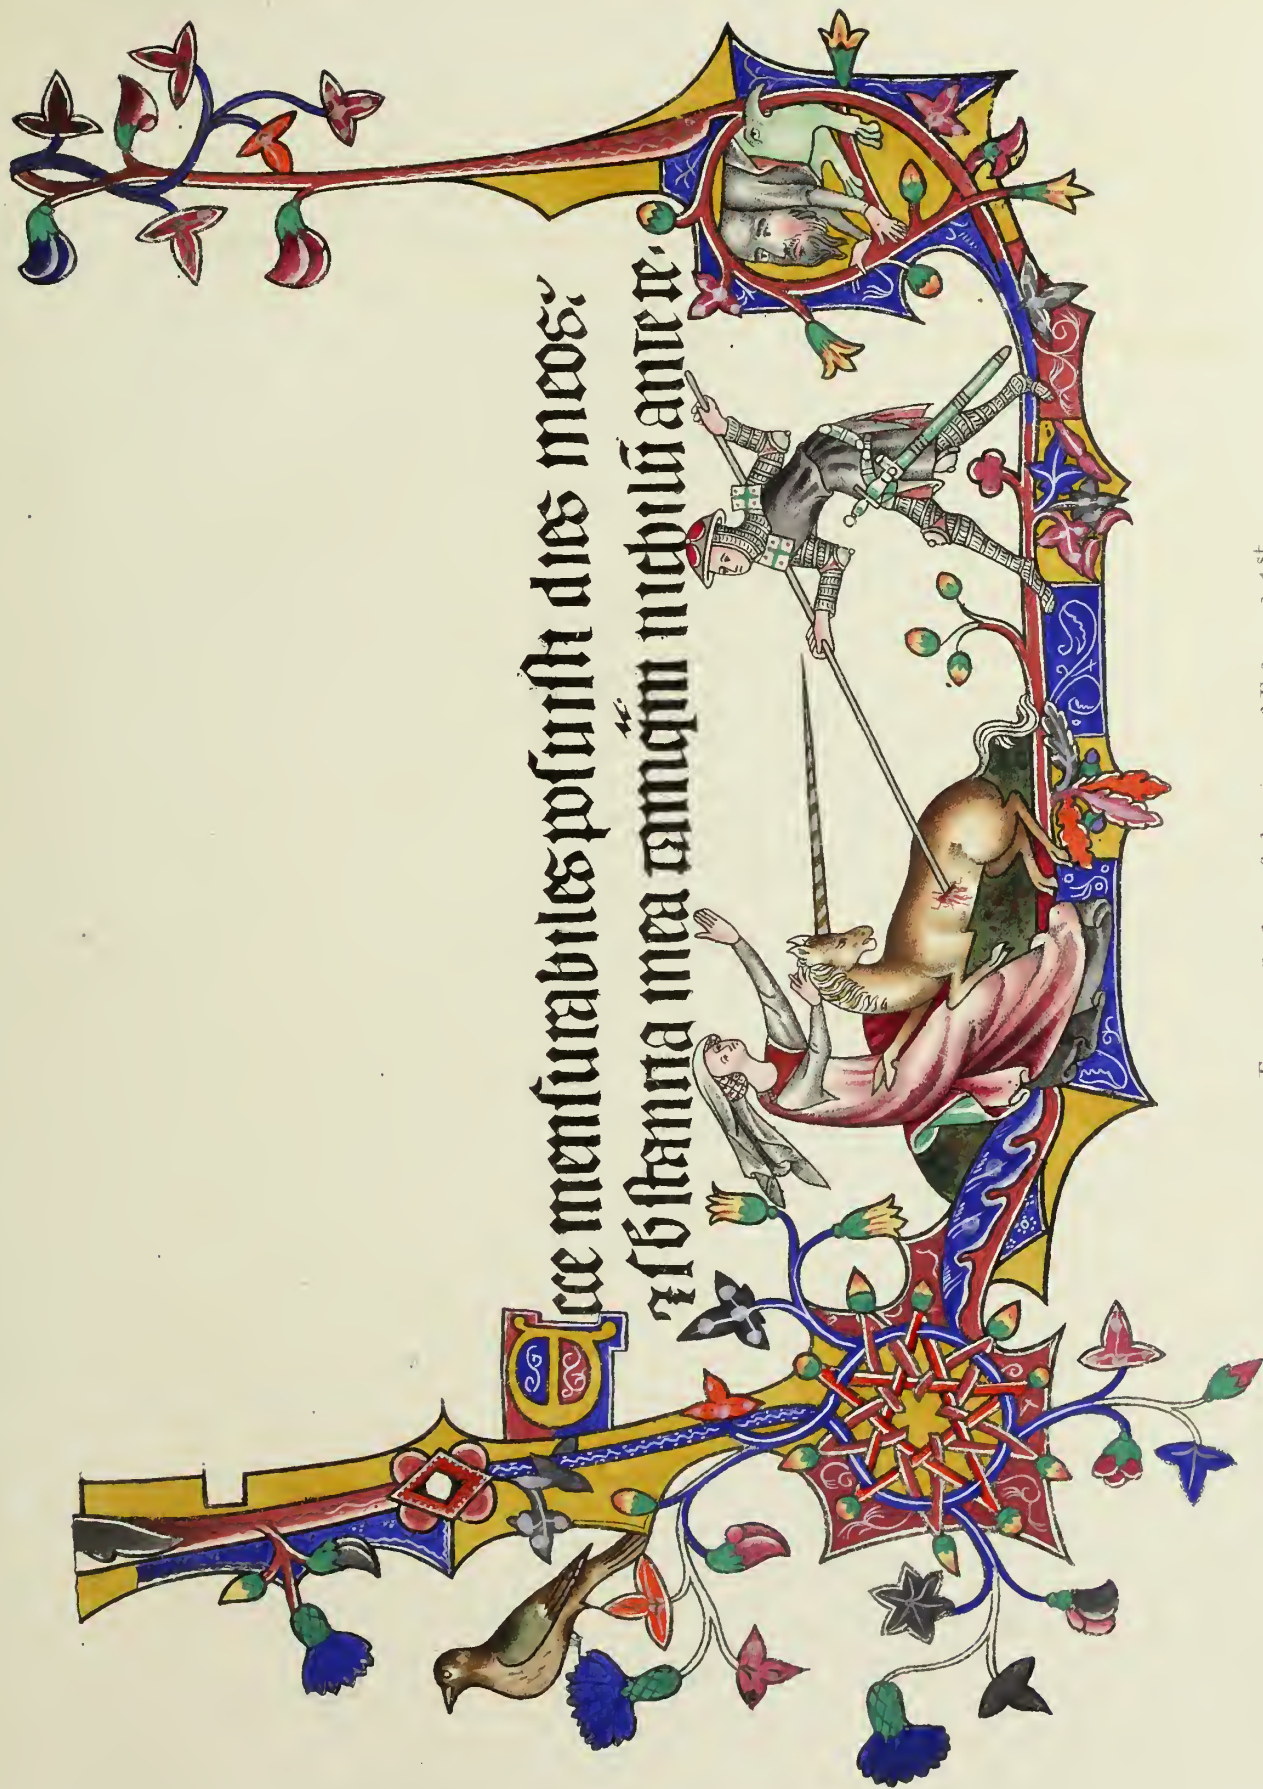 Ecce menſurabiles poſuiſti dies meos:
⁊ ſb̄ſtantia mea tamq̄m nichilū ante te.
1st